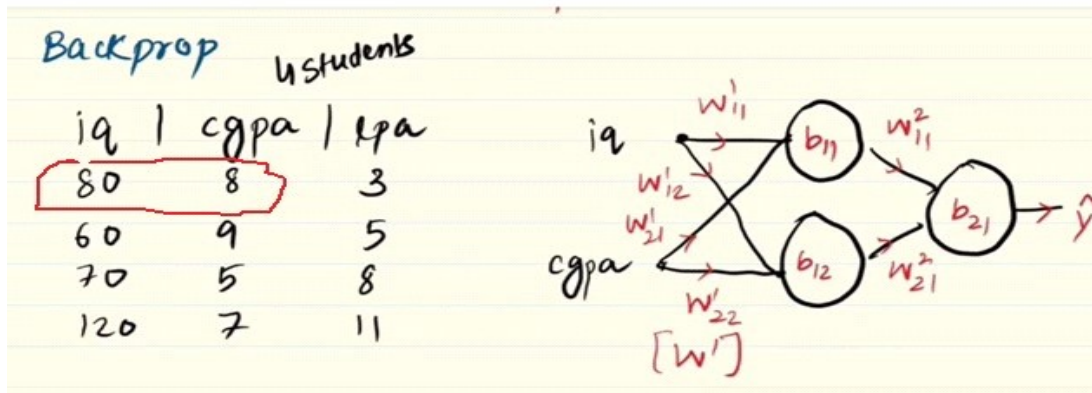 Backprop
4 students
iq | cgpa | lpa
80 8 3
60 9 5
70 5 8
120 7 11
iq
cgpa
W¹₁₁
W¹₁₂
W¹₂₁
W¹₂₂
[W¹]
b₁₁
b₁₂
W²₁₁
W²₂₁
b₂₁
ŷ